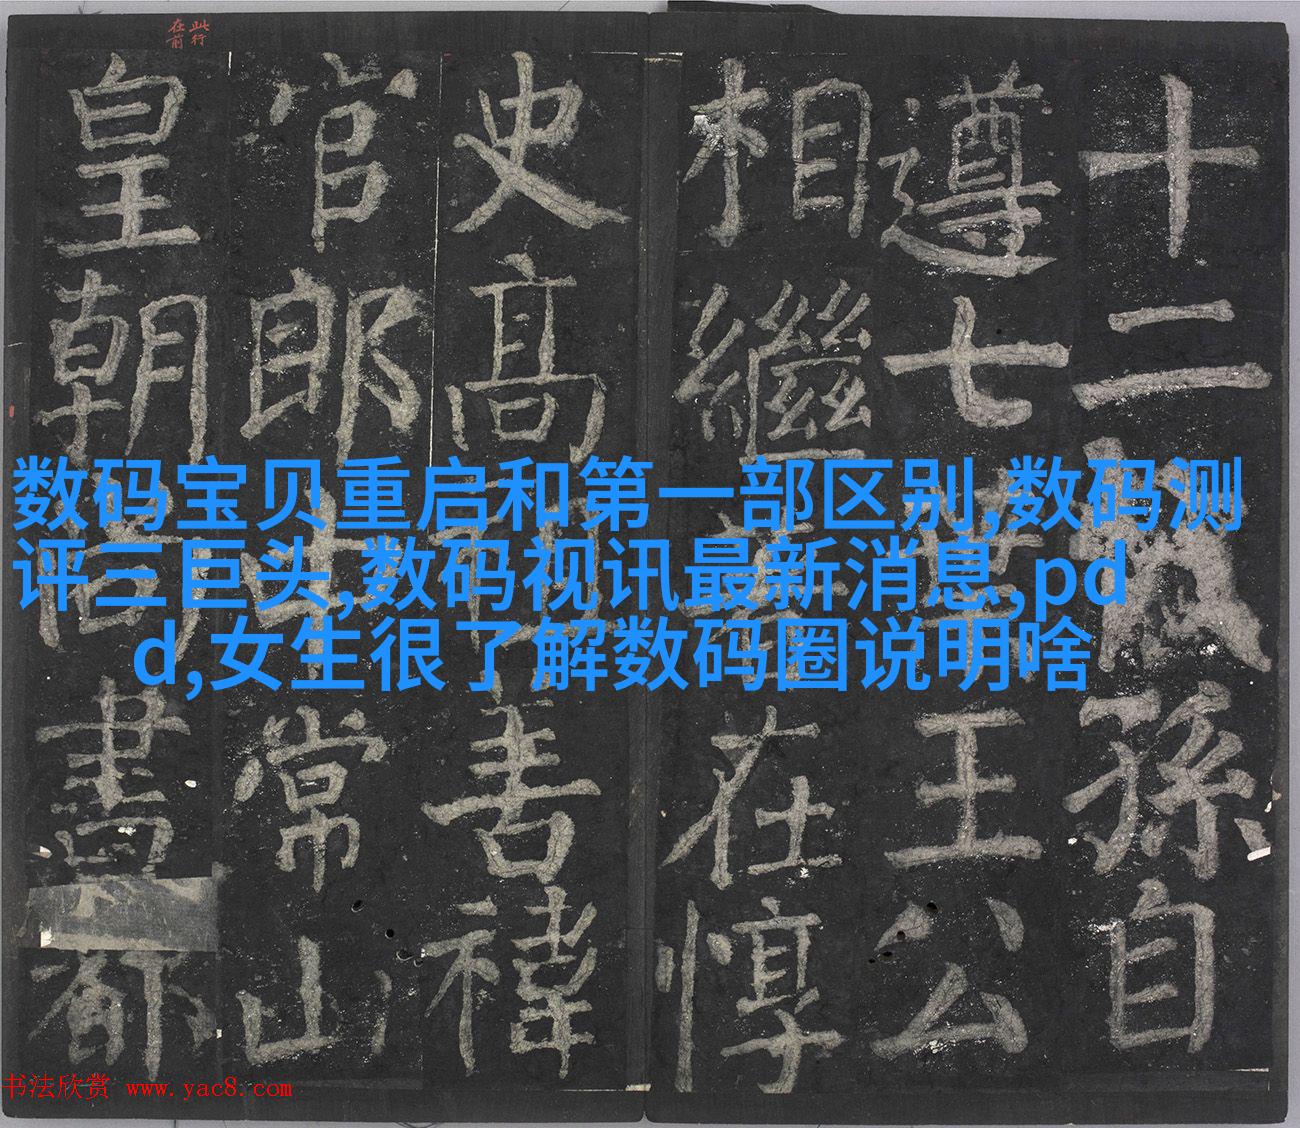 数码宝贝重启和第一部区别,数码测
评三巨头,数码视讯最新消息,pd
d,女生很了解数码圈说明啥
十二孫自
遵七王公
相繼在惇
史高善禕
官郎常山
皇朝尚書都
此行
在前
书法欣赏 www.yac8.com